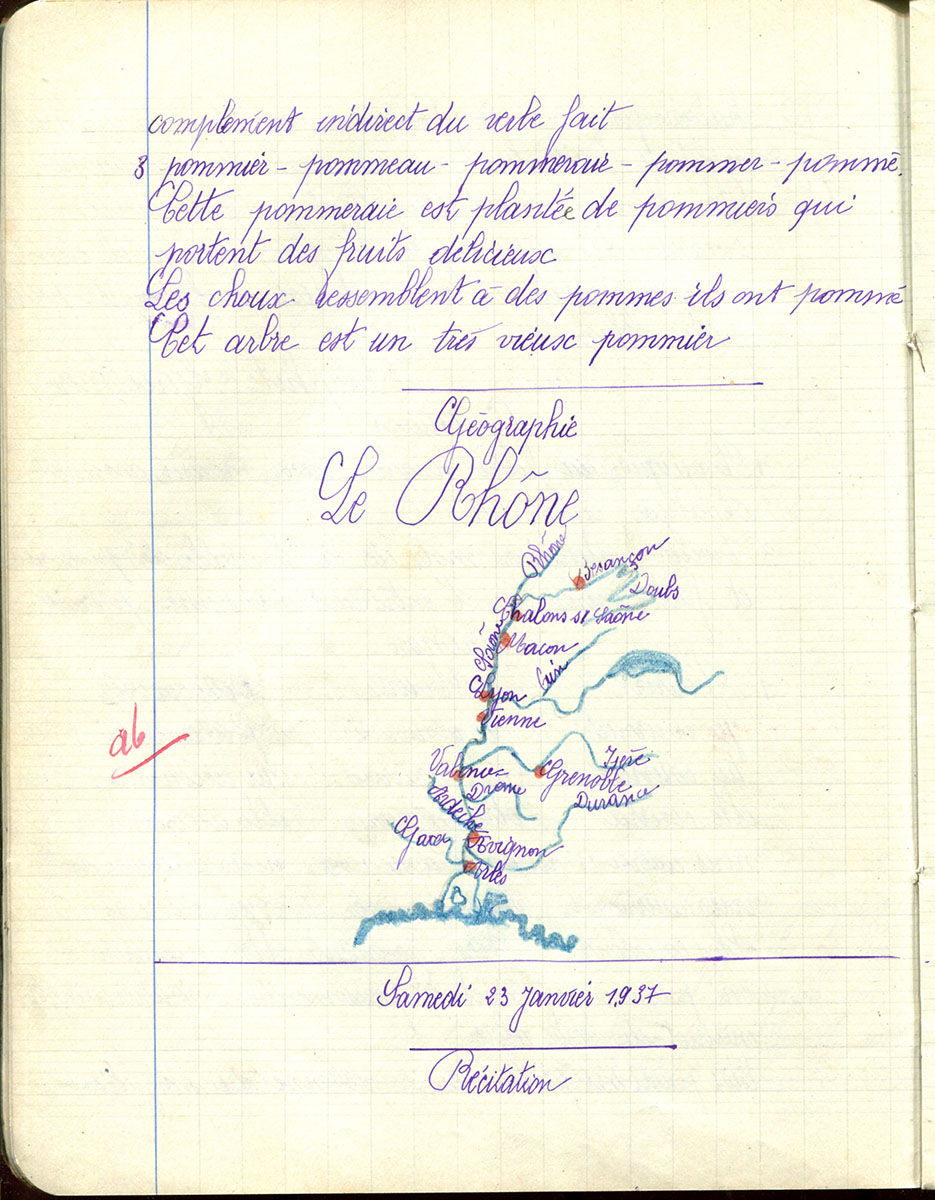 complément indirect du verbe fait
3 pommier - pommeau - pommeraie - pommer - pommé.
Cette pommeraie est plantée de pommiers qui
portent des fruits délicieux
Les choux ressemblent à des pommes ils ont pommé
Cet arbre est un très vieux pommier
Géographie
Le Rhône
Rhône
Besançon
Doubs
Chalons s/ Saône
Saône
Macon
Ain
Lyon
Vienne
Isère
Valence
Grenoble
Drome
Durance
Ardèche
Gard
Avignon
Arles
ab
Samedi 23 Janvier 1937
Récitation